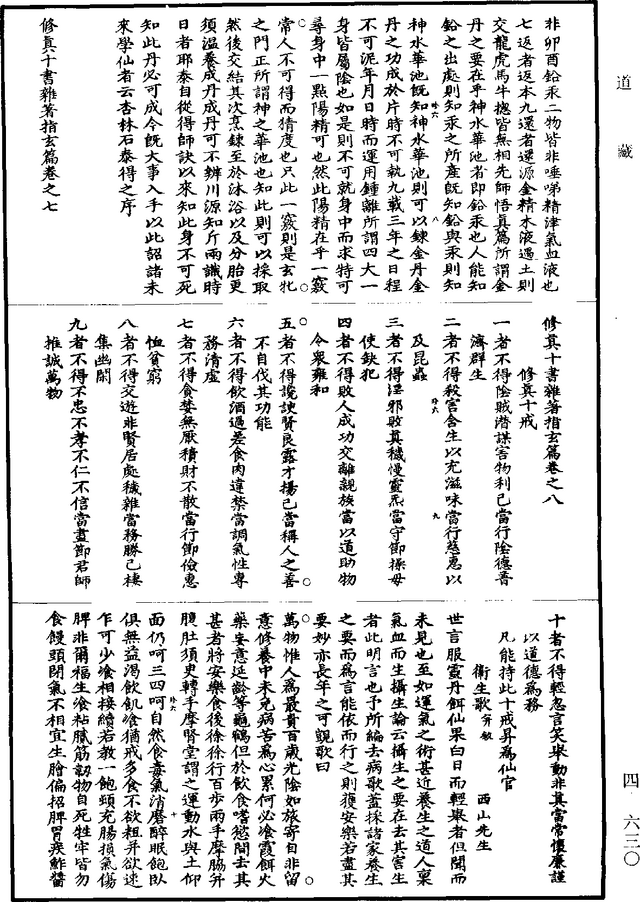 道藏
非卯酉鉛汞二物皆非唾啼精津氣血液也
七返者返本九還者還源金精木液遇土則
交龍虎馬牛揔皆無相先師悟眞篇所謂金
丹之要在乎神水華池者即鉛汞也人能知
鉛之出處則知汞之所産既知鉛與汞則知
神水華池既知神水華池則可以鍊金丹金
丹之功成於片時不可執九載三年之日程
不可泥年月日時而運用鍾離所謂四大一
身皆屬陰也如是則不可就身中而求特可
尋身中一點陽精可也然此陽精在乎一竅
常人不可得而猜度也只此一竅則是玄牝
之門正所謂神之華池也知此則可以採取
然後交結其次烹鍊至於沐浴以及分胎更
須溫養成丹成丹可不辨川源知斤兩識時
日者耶泰自從得師訣以來知此身不可死
知此丹必可成今既大事入手以此詔諸未
來學仙者云杏林石泰得之序
修眞十書雜著指玄篇卷之七
修眞十書雜著指玄篇卷之八
修眞十戒
一者不得陰賊潛謀害物利己當行陰德普
濟群生
二者不得殺害含生以充滋味當行慈惠以
及昆蟲
三者不得淫邪敗眞穢慢靈炁當守節操毋
使缺犯
四者不得敗人成功交離親族當以道助物
令衆雍和
五者不得讒諛賢良露才揚己當稱人之善
不自伐其功能
六者不得飲酒過差食肉違禁當調氣性專
務清虛
七者不得貪婪無厭積財不散當行節儉惠
恤貧窮
八者不得交遊非賢居處穢雜當務勝己棲
集幽閑
九者不得不忠不孝不仁不信當盡節君師
推誠萬物
十者不得輕忽言笑舉動非眞當常懷廉謹
以道德爲務
凡能持此十戒昇爲仙官
衛生歌并敘
西山先生
世言服靈丹餌仙果白日而輕舉者但聞而
未見也至如運氣之術甚近養生之道人稟
氣血而生攝生論云攝生之要在去其害生
者此明言也予所編去病歌蓋採諸家養生
之要而爲言能依而行之則獲安樂若盡其
要妙亦長年之可覬歌曰
萬物惟人爲最貴百歲光陰如旅寄自非留
意修養中未免病苦爲心累何必飡霞餌火
藥妄意延齡等龜鶴但於飲食嗜慾間去其
甚者將安樂食後徐徐行百歩兩手摩脇并
腹肚須臾轉手摩腎堂謂之運動水與土仰
面仍呵三四呵自然食毒氣消磨醉眠飽臥
俱無益渴飲飢飡猶戒多食不欲粗并欲速
乍可少飡相接續若教一飽頓充腸損氣傷
脾非爾福生飡粘膩筋韌物自死牲牢皆勿
食饅頭閉氣不相宜生膾偏招脾胃疾鮓醬
四·六三〇